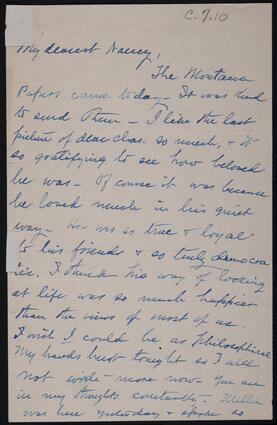 C.7.10
My dearest Nancy,
The Montana
Papers came today - It was kind
to send them - I like the last
picture of dear Chas. so much, & it
so gratifying to see how beloved
he was - Of course it was because
he loved much in his quiet
way - He was so true & loyal
to his friends & so truly democra
tic. I think his way of looking
at life was so much happier
than the views of most of us.
I wish I could be as Philosophical
My hands hurt tonight so I will
not write more now - You are
in my thoughts constantly - Millie
was here yesterday & spoke so